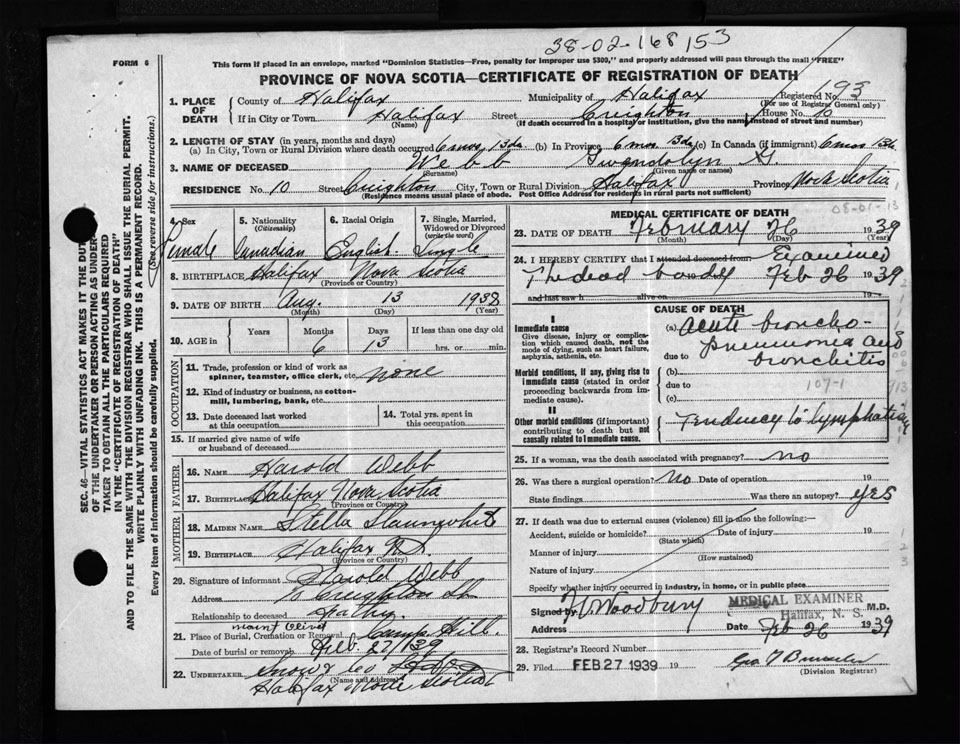 38-02-168153
FORM 6
This form if placed in an envelope, marked "Dominion Statistics—Free, penalty for improper use $300," and properly addressed will pass through the mail "FREE"
PROVINCE OF NOVA SCOTIA—CERTIFICATE OF REGISTRATION OF DEATH
193
1. PLACE OF DEATH County of Halifax Municipality of Halifax Registered No.
(For use of Registrar General only)
If in City or Town Halifax Street Creighton House No. 10
(Name) (If death occurred in a hospital or institution, give the name instead of street and number)
2. LENGTH OF STAY (in years, months and days)
(a) In City, Town or Rural Division where death occurred 6 mos 13 ds (b) In Province 6 mos 13 ds (c) In Canada (if immigrant) 6 mos 13 ds
3. NAME OF DECEASED Webb Gwendolyn
(Surname) (Given name or names)
RESIDENCE No. 10 Street Creighton City, Town or Rural Division Halifax Province Nova Scotia
(Residence means usual place of abode. Post Office Address for residents in rural parts not sufficient)
08-01-13
4. Sex 5. Nationality (Citizenship) 6. Racial Origin 7. Single, Married, Widowed or Divorced (write the word)
Female Canadian English Single
8. BIRTHPLACE Halifax Nova Scotia
(Province or Country)
9. DATE OF BIRTH Aug. 13 1938
(Month) (Day) (Year)
10. AGE in Years Months Days If less than one day old
6 13 hrs. or min.
OCCUPATION
11. Trade, profession or kind of work as spinner, teamster, office clerk, etc. none
12. Kind of industry or business, as cotton-mill, lumbering, bank, etc.
13. Date deceased last worked at this occupation 14. Total yrs. spent in this occupation
15. If married give name of wife or husband of deceased
FATHER
16. NAME Harold Webb
17. BIRTHPLACE Halifax Nova Scotia
MOTHER
18. MAIDEN NAME Stella
19. BIRTHPLACE Halifax N.S.
(Province or Country)
20. Signature of informant Harold Webb
Address Creighton St.
Relationship to deceased Father
Mount Olivet
21. Place of Burial, Cremation or Removal Camp Hill
Date of burial or removal Feb. 27/39
22. UNDERTAKER Snow & Co
(Name and address)
Halifax Nova Scotia
MEDICAL CERTIFICATE OF DEATH
23. DATE OF DEATH February 26 1939
(Month) (Day) (Year)
24. I HEREBY CERTIFY that I attended deceased from Examined
The dead body Feb 26 1939
and last saw h alive on 19
CAUSE OF DEATH
I
Immediate cause
Give disease, injury or complication which caused death, not the mode of dying, such as heart failure, asphyxia, asthenia, etc.
(a) Acute broncho-
pneumonia and
due to bronchitis
Morbid conditions, if any, giving rise to immediate cause (stated in order proceeding backwards from immediate cause).
(b)
due to 107-1
(c)
II
Other morbid conditions (if important) contributing to death but not causally related to immediate cause.
Tendency to lymphatism
25. If a woman, was the death associated with pregnancy? no
26. Was there a surgical operation? No Date of operation 19
State findings Was there an autopsy? yes
27. If death was due to external causes (violence) fill in also the following:—
Accident, suicide or homicide? Date of injury 19
(State which)
Manner of injury
(How sustained)
Nature of injury
Specify whether injury occurred in industry, in home, or in public place
Signed by Woodbury MEDICAL EXAMINER M.D.
Halifax, N. S.
Address Date Feb 26 1939
28. Registrar's Record Number
29. Filed FEB 27 1939 19 Geo
(Division Registrar)
SEC. 46—VITAL STATISTICS ACT MAKES IT THE DUTY
OF THE UNDERTAKER OR PERSON ACTING AS UNDER-
TAKER TO OBTAIN ALL THE PARTICULARS REQUIRED
IN THE "CERTIFICATE OF REGISTRATION OF DEATH"
AND TO FILE THE SAME WITH THE DIVISION REGISTRAR WHO SHALL ISSUE THE BURIAL PERMIT.
WRITE PLAINLY WITH UNFADING INK. THIS IS A PERMANENT RECORD.
Every item of information should be carefully supplied. (See reverse side for instructions.)